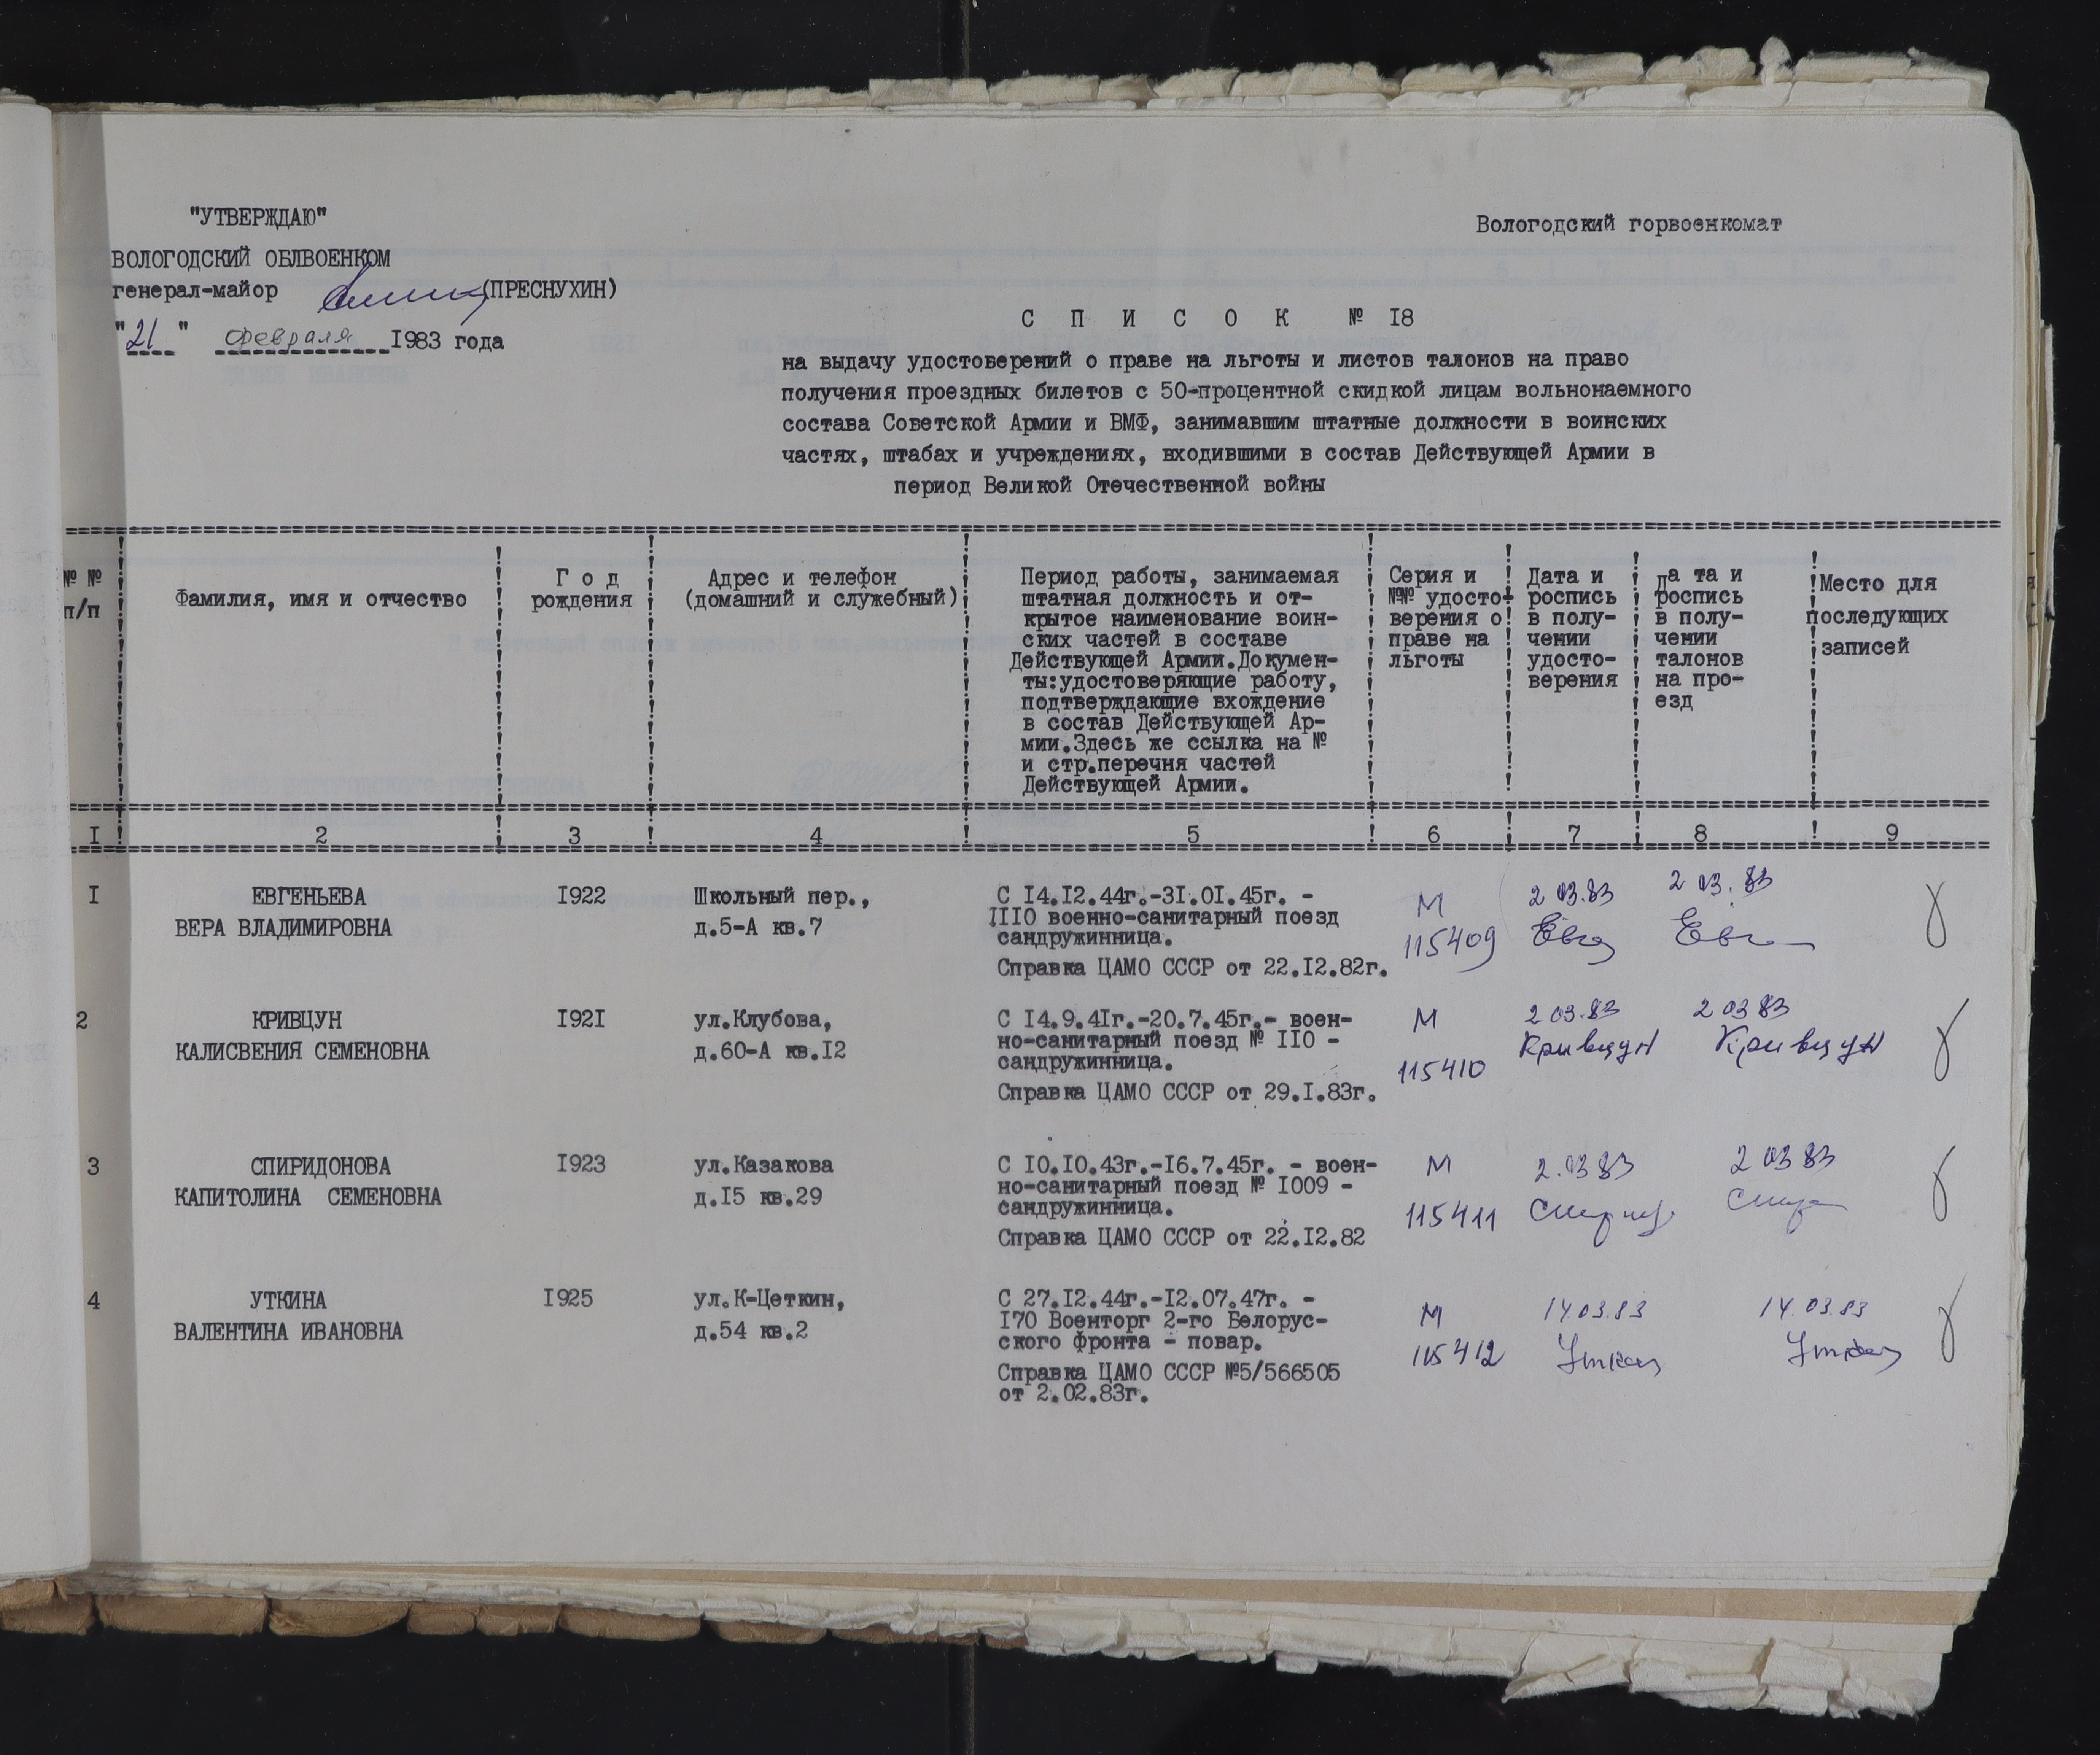 "УТВЕРЖДАЮ"
ВОЛОГОДСКИЙ ОБЛВОЕНКОМ
генерал-майор (ПРЕСНУХИН)
"21" февраля 1983 года
Вологодский горвоенкомат
С П И С О К № I8
на выдачу удостоверений о праве на льготы и листов талонов на право
получения проездных билетов с 50-процентной скидкой лицам вольнонаемного
состава Советской Армии и ВМФ, занимавшим штатные должности в воинских
частях, штабах и учреждениях, входившими в состав Действующей Армии в
период Великой Отечественной войны
№ №
п/п
Фамилия, имя и отчество
Г о д
рождения
Адрес и телефон
(домашний и служебный)
Период работы, занимаемая
штатная должность и от-
крытое наименование воин-
ских частей в составе
Действующей Армии.Докумен-
ты:удостоверяющие работу,
подтверждающие вхождение
в состав Действующей Ар-
мии.Здесь же ссылка на №
и стр.перечня частей
Действующей Армии.
Серия и
№№ удосто-
верения о
праве на
льготы
Дата и
роспись
в полу-
чении
удосто-
верения
Да та и
роспись
в полу-
чении
талонов
на про-
езд
Место для
последующих
записей
I 2 3 4 5 6 7 8 9
I
ЕВГЕНЬЕВА
ВЕРА ВЛАДИМИРОВНА
I922
Школьный пер.,
д.5-А кв.7
С I4.I2.44г.-3I.0I.45г. -
IIIO военно-санитарный поезд
сандружинница.
Справка ЦАМО СССР от 22.I2.82г.
М
115409
2 03.83
Евг
2 03.83
Евг
2
КРИВЦУН
КАЛИСВЕНИЯ СЕМЕНОВНА
I92I
ул.Клубова,
д.60-А кв.I2
С I4.9.4Iг.-20.7.45г.- воен-
но-санитарный поезд № IIO -
сандружинница.
Справка ЦАМО СССР от 29.I.83г.
М
115410
2 03.83
Кривцун
2 03 83
Кривцун
3
СПИРИДОНОВА
КАПИТОЛИНА СЕМЕНОВНА
I923
ул.Казакова
д.I5 кв.29
С IO.IO.43г.-I6.7.45г. - воен-
но-санитарный поезд № I009 -
сандружинница.
Справка ЦАМО СССР от 22.I2.82
М
115411
2.03 83
2 03 83
4
УТКИНА
ВАЛЕНТИНА ИВАНОВНА
I925
ул.К-Цеткин,
д.54 кв.2
С 27.I2.44г.-I2.07.47г. -
I70 Военторг 2-го Белорус-
ского фронта - повар.
Справка ЦАМО СССР №5/566505
от 2.02.83г.
М
115412
14 03.83
14.03.83